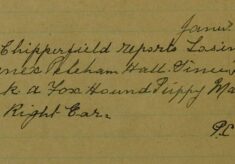 Janu.
Chipperfield reports Losin
Pelham Hall. Timew
k a Fox Hound Puppy Ma
Right Ear.
P.C